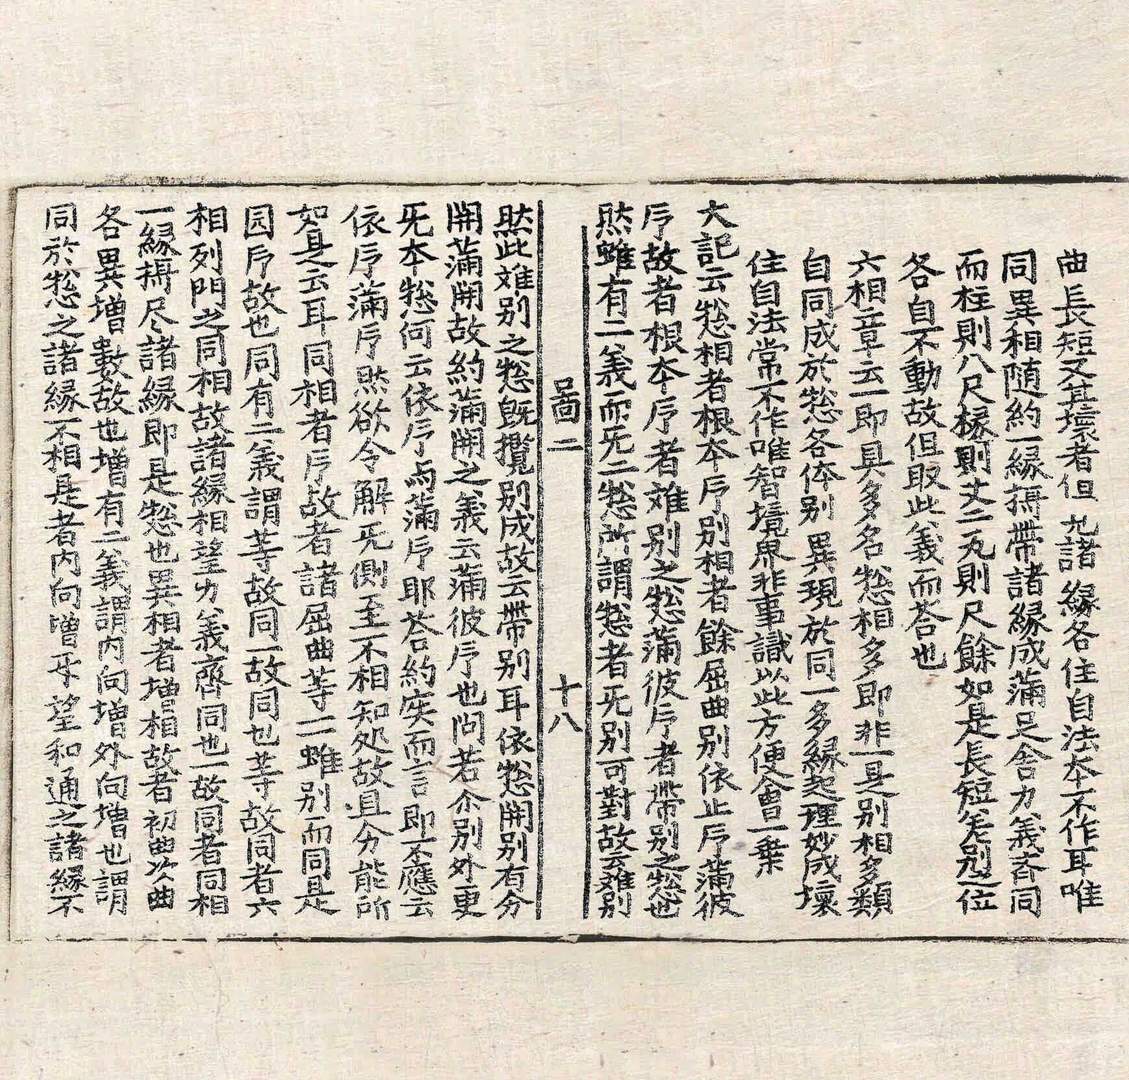 曲長短又其壞者但九諸縁各住自法本不作耳唯
同異相随約一縁擧帶諸縁成滿足舎力義斉同
而柱則八尺椽則丈二瓦則尺餘如是長短差别一位
各自不動故但取此義而荅也
六相章云一即具多名惣相多即非一是别相多類
自同成於惣各体别異現於同一多縁起理妙成壞
住自法常不作唯智境界非事識以此方便會一乗
大記云惣相者根本卩别相者餘屈曲别依止卩滿彼
卩故者根本卩者難别之惣滿彼卩者帶别之惣也
然雖有二義而旡二惣所謂惣者旡别可對故云難别
啚二　十八
然此難别之惣旣攬别成故云帶别耳依惣開别有分
開滿開故約滿開之義云滿彼卩也問若尒别外更
旡本惣何云依卩与滿卩耶荅約実而言即不應云
依卩滿卩然欲令解旡側至不相知処故且分能所
如是云耳同相者卩故者諸屈曲等一一雖别而同是
园卩故也同有二義謂等故同一故同也等故同者六
相列門之同相故諸縁相望力義齊同也一故同者同相
一縁擧尽諸縁即是惣也異相者增相故者初曲次曲
各異增數故也增有二義謂内向增外向增也謂
同於惣之諸縁不相是者内向增牙望和通之諸縁不